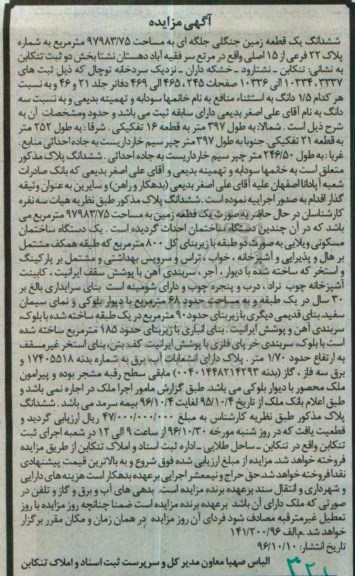 آگهی مزایده
ششدانگ یک قطعه زمین جنگلی جلگه ای به مساحت ۹۷۹۸۳/۷۵ مترمربع به شماره
پلاک ۲۲ فرعی از ۱۵ اصلی واقع در مرتع سر فقیه آباد دهستان نشتا بخش دو ثبت تنکابن
به نشانی: تنکابن - نشتارود - خشکه داران - نزدیک سردخانه توچال که ذیل ثبت های
۳۳۳۷، ۱۰۲۳۴ الی ۱۰۳۳۶ صفحات ۲۴۵، ۴۶۵ الی ۴۶۹ دفاتر جلد ۲۱ و ۴۶ و به نسبت
هر کدام ۱/۵ دانگ به استثناء منافع به نام خانمها سودابه و تهمینه بدیعی و به نسبت سه
دانگ به نام آقای علی اصغر بدیعی دارای سابقه ثبت می باشد و حدود ومشخصات آن به
شرح ذیل است. شمالا: به طول ۳۹۷ متر به قطعه ۱۶ تفکیکی. شرقا: به طول ۲۵۲ متر
به قطعه ۲۱ تفکیکی جنوبا به طول ۳۹۷ متر چپر سیم خارداریست به جاده احداثی منابع.
غربا: به طول ۲۴۶/۵۰ متر چپر سیم خارداریست به جاده احداثی. ششدانگ پلاک مذکور
متعلق است به خانمها سودابه و تهمینه بدیعی و آقای علی اصغر بدیعی که بانک صادرات
شعبه آپادانا اصفهان علیه آقای علی اصغر بدیعی (بدهکار و راهن) و سایرین به عنوان وثیقه
گذار اقدام به صدور اجراییه نموده است. ششدانگ پلاک مذکور طبق نظریه هیات سه نفره
کارشناسان در حال حاضر به صورت یک قطعه زمین به مساحت ۹۷۹۸۳/۷۵ مترمربع می
باشد که در آن چندین دستگاه ساختمان احداث گردیده است. یک دستگاه ساختمان
مسکونی ویلایی به صورت دو طبقه با زیربنای کل ۸۰۰ مترمربع که طبقه همکف مشتمل
بر هال و پذیرایی و آشپزخانه، خواب، تراس و سرویس بهداشتی و مشتمل بر پارکینگ
و استخر که ساخته شده با دیوار، آجر، سربندی آهن با پوشش سقف ایرانیت، کابینت
آشپزخانه چوب نراد، درب و پنجره چوب و دارای شومینه است. بنای سرایداری بالغ بر
۳۰ سال در یک طبقه و به مساحت حدود ۶۸ مترمربع با دیوار بلوکی و نمای سیمان
سفید. بنای قدیمی دیگری با زیربنای حدود ۹۰ مترمربع در یک طبقه ساخته شده با بلوک،
سربندی آهن و پوشش ایرانیت. بنای انباری با زیربنای حدود ۱۸۵ مترمربع ساخته شده
است با بلوک، سربندی خرپای فلزی با پوشش ایرانیت، کف بتن. بنای استخر غیرمسقف
به ارتفاع حدود ۱/۷۰ متر. پلاک دارای انشعابات آب، برق به شماره بدنه ۱۷۴۰۵۵۱۸ و
برق سه فاز، گاز (بدنه ۰۰۴۰۱۴۴۸۲۱۴۲۹۳) مابقی سطح رقبه مشجر بوده و پیرامون
ملک محصور با دیوار بلوکی می باشد. طبق گزارش مامور اجرا ملک در اجاره نمی باشد و
طبق اعلام بانک ملک از تاریخ ۹۵/۱۰/۴ لغایت ۹۶/۱۰/۴ بیمه سرمد می باشد. ششدانگ
پلاک مذکور طبق نظریه کارشناس به مبلغ ۴۷/۰۰۰/۰۰۰/۰۰۰ ریال ارزیابی گردید و
قطعیت یافت که در روز شنبه مورخه ۹۶/۱۰/۳۰ از ساعت ۹ الی ۱۲ در شعبه اجرای ثبت
تنکابن واقع در تنکابن - ساحل طلایی - اداره ثبت اسناد و املاک تنکابن از طریق مزایده
فروخته خواهد شد. مزایده از مبلغ ارزیابی شده فوق شروع و به بالاترین قیمت پیشنهادی
نقدا فروخته خواهد شد. حق حراج و نیم‌عشر اجرایی برعهده بدهکار است هزینه های دارایی
و شهرداری و انتقال سند برعهده برنده مزایده است. بدهی های آب و برق و گاز و تلفن در
صورتی که ملک دارای آن باشد برعهده برنده مزایده است ضمنا چنانچه روز مزایده با روز
تعطیل غیرمترقبه مصادف شود فردای آن روز مزایده در همان زمان و مکان مقرر برگزار
خواهد شد. م‌الف ۱۴۱/۲۰۰/۹۶
تاریخ انتشار: ۹۶/۱۰/۱۰
الیاس صهبا معاون مدیر کل و سرپرست ثبت اسناد و املاک تنکابن